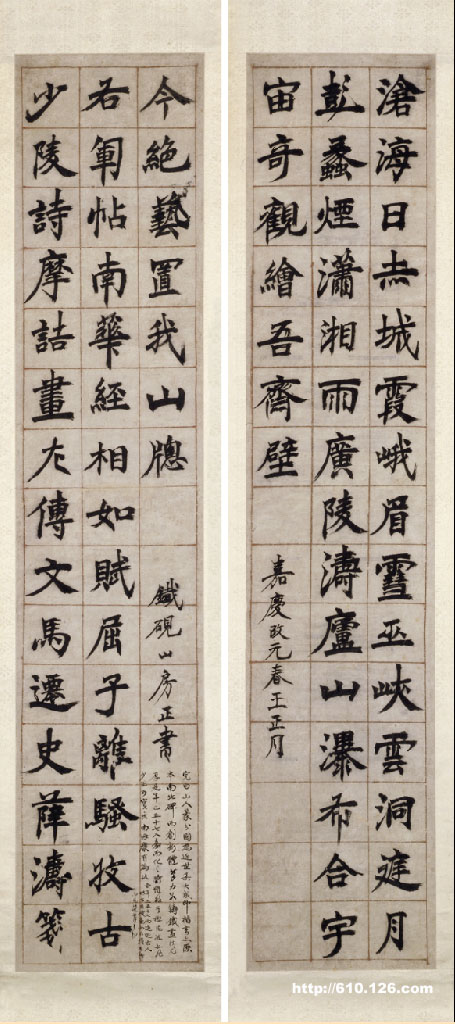 滄海日赤城霞峨眉雪巫峽雲洞庭月
彭蠡煙瀟湘雨廣陵濤廬山瀑布合宇
宙奇觀繪吾齋壁
嘉慶改元春王正月
少陵詩摩詰畫左傳文馬遷史薛濤箋
右軍帖南華經相如賦屈子離騷收古
今絕藝置我山牕
鐵硯山房正書
http://610.126.com/